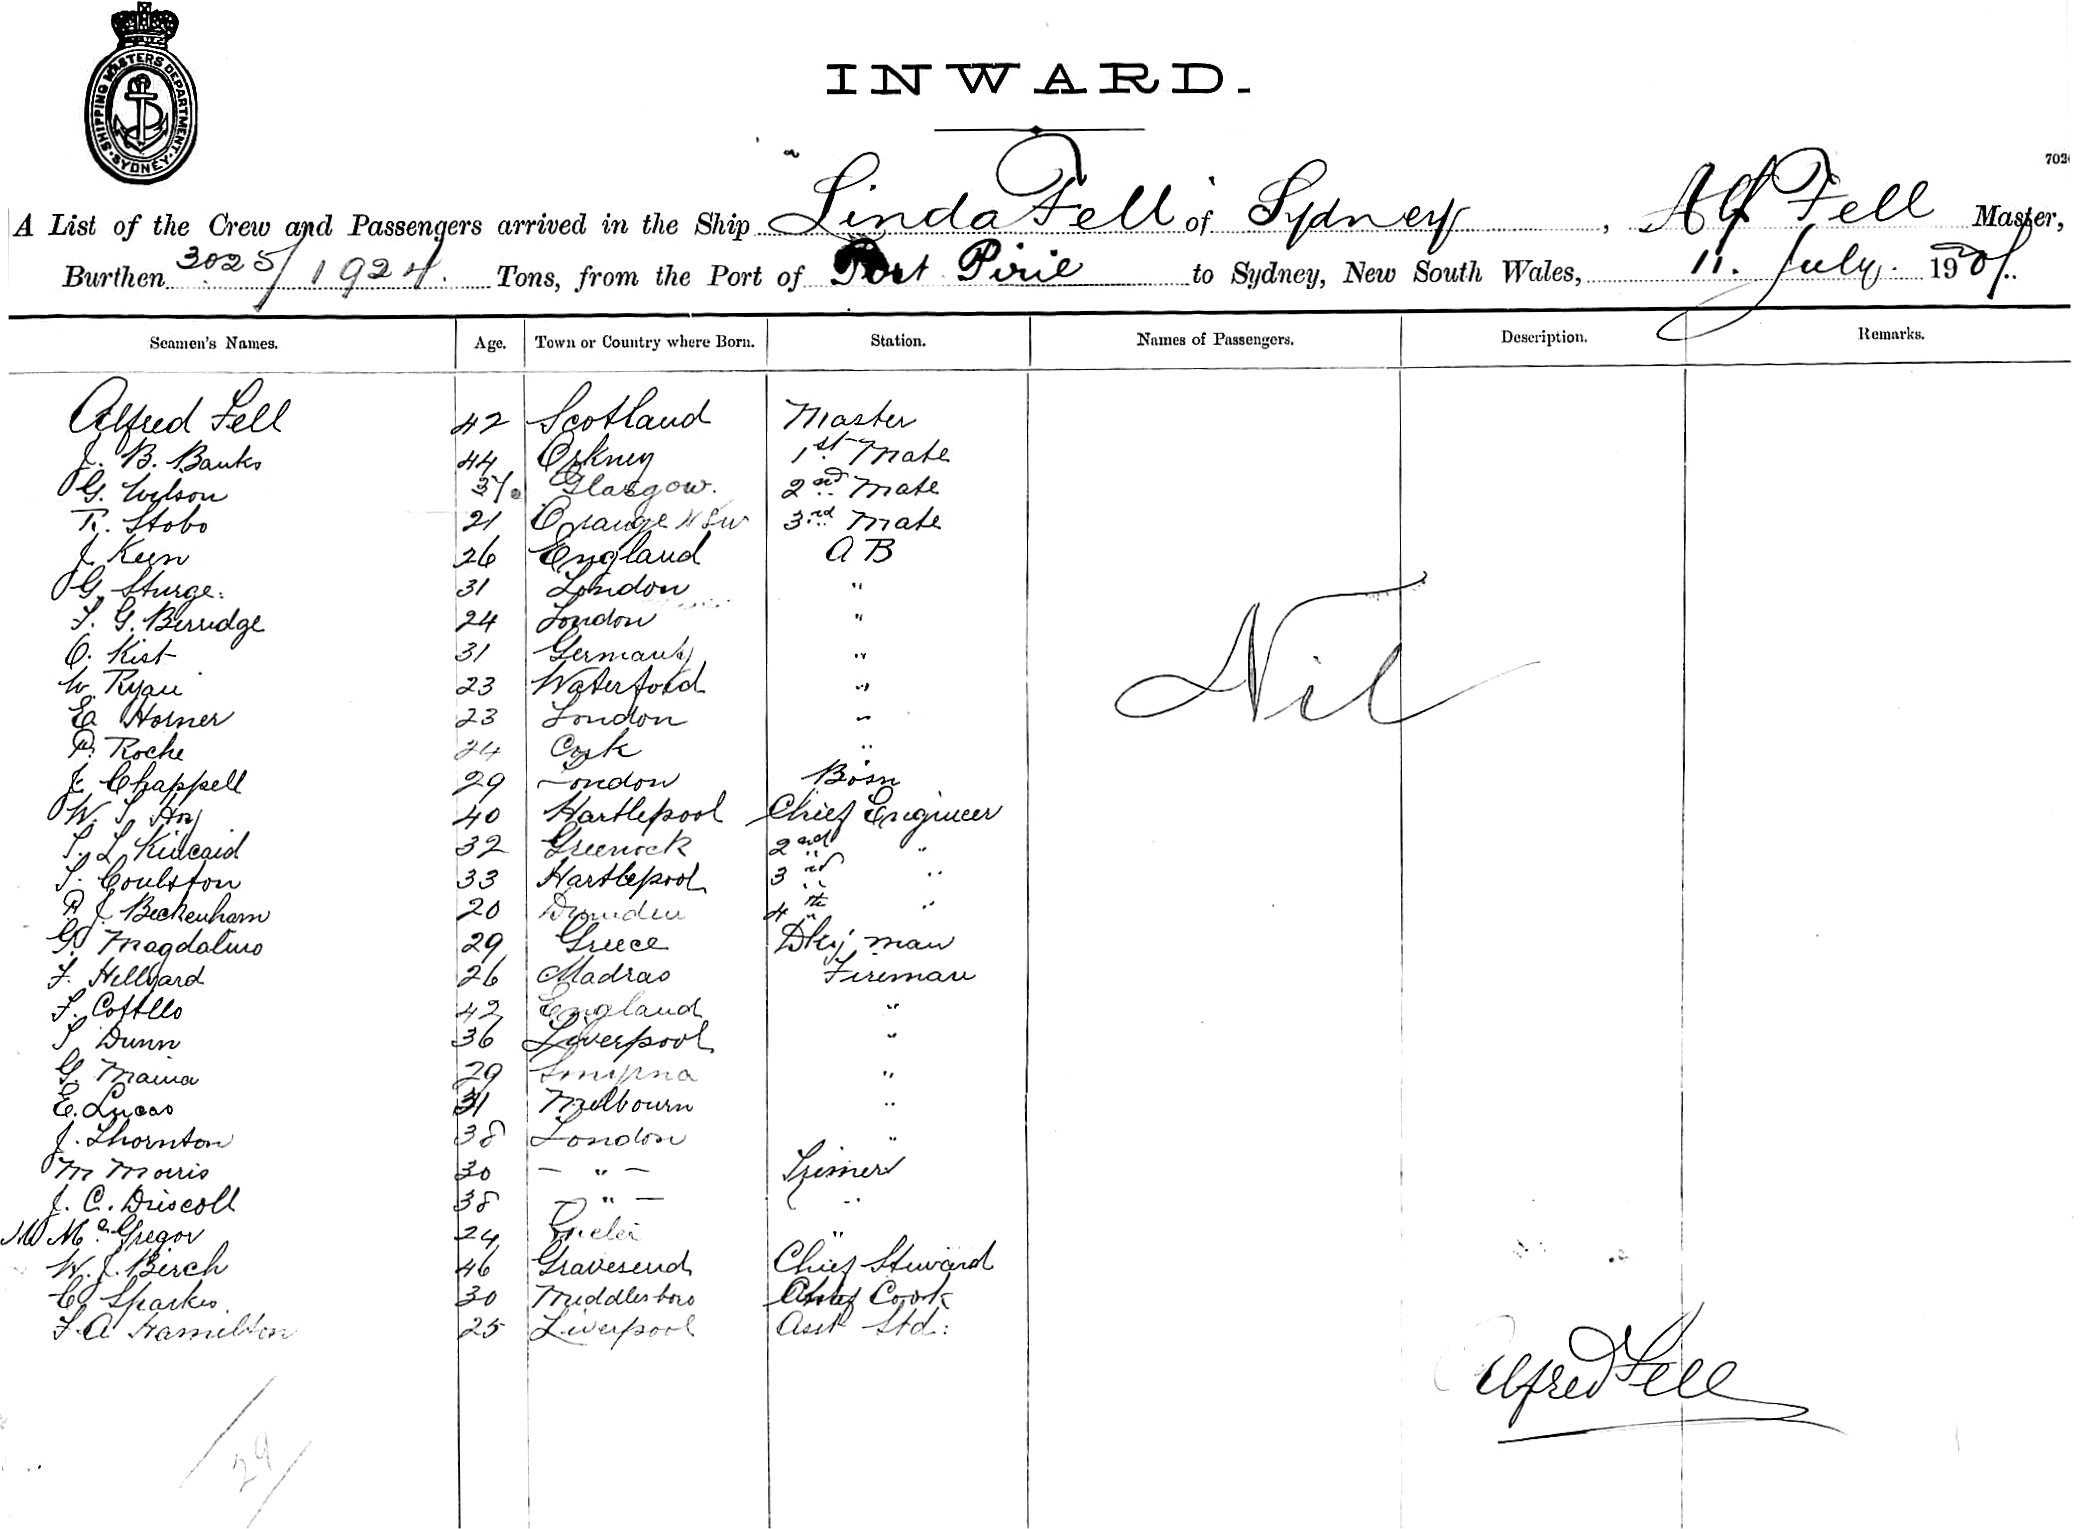 SHIPPING MASTERS DEPARTMENT · SYDNEY ·
INWARD.
702
A List of the Crew and Passengers arrived in the Ship "Linda Fell" of Sydney, Alf Fell Master,
Burthen 3025/1924. Tons, from the Port of Port Pirie to Sydney, New South Wales, 11. July. 190
Seamen's Names. Age. Town or Country where Born. Station. Names of Passengers. Description. Remarks.
Alfred Fell 42 Scotland Master
J. B. Banks 44 Orkney 1st Mate
G. Wilson Glasgow. 2nd Mate
R. Stobo 21 Orange NSW 3rd Mate
J. Keen 26 England A B
G. Sturge: 31 London "
T. G. Berridge 24 London "
O. Kist 31 Germany "
W. Ryan 23 Waterford "
E. Horner 23 London "
P. Roche 24 Cork "
J. Chappell 29 London Bosn
W. T. Hoy 40 Hartlepool Chief Engineer
T. L Kincaid 32 Greenock 2nd "
T. Coulston 33 Hartlepool 3rd "
P. J. Beckenham 20 Dunedin 4th "
G. Magdalino 29 Greece Dky man
F. Hellyard 26 Madras Fireman
F. Costllo 42 England "
T Dunn 36 Liverpool "
G. Maina 29 Smyrna "
E. Lucas 31 Melbourn "
J. Thornton 38 London "
M Morris 30 — " — Trimer
J. C. Driscoll 38 — " — "
W McGregor 24 "
W. J. Birch 46 Gravesend Chief Steward
C. Sparkes. 30 Middlesboro Chief Cook
F. A Hamilton 25 Liverpool Asst Std:
Nil
Alfred Fell
29